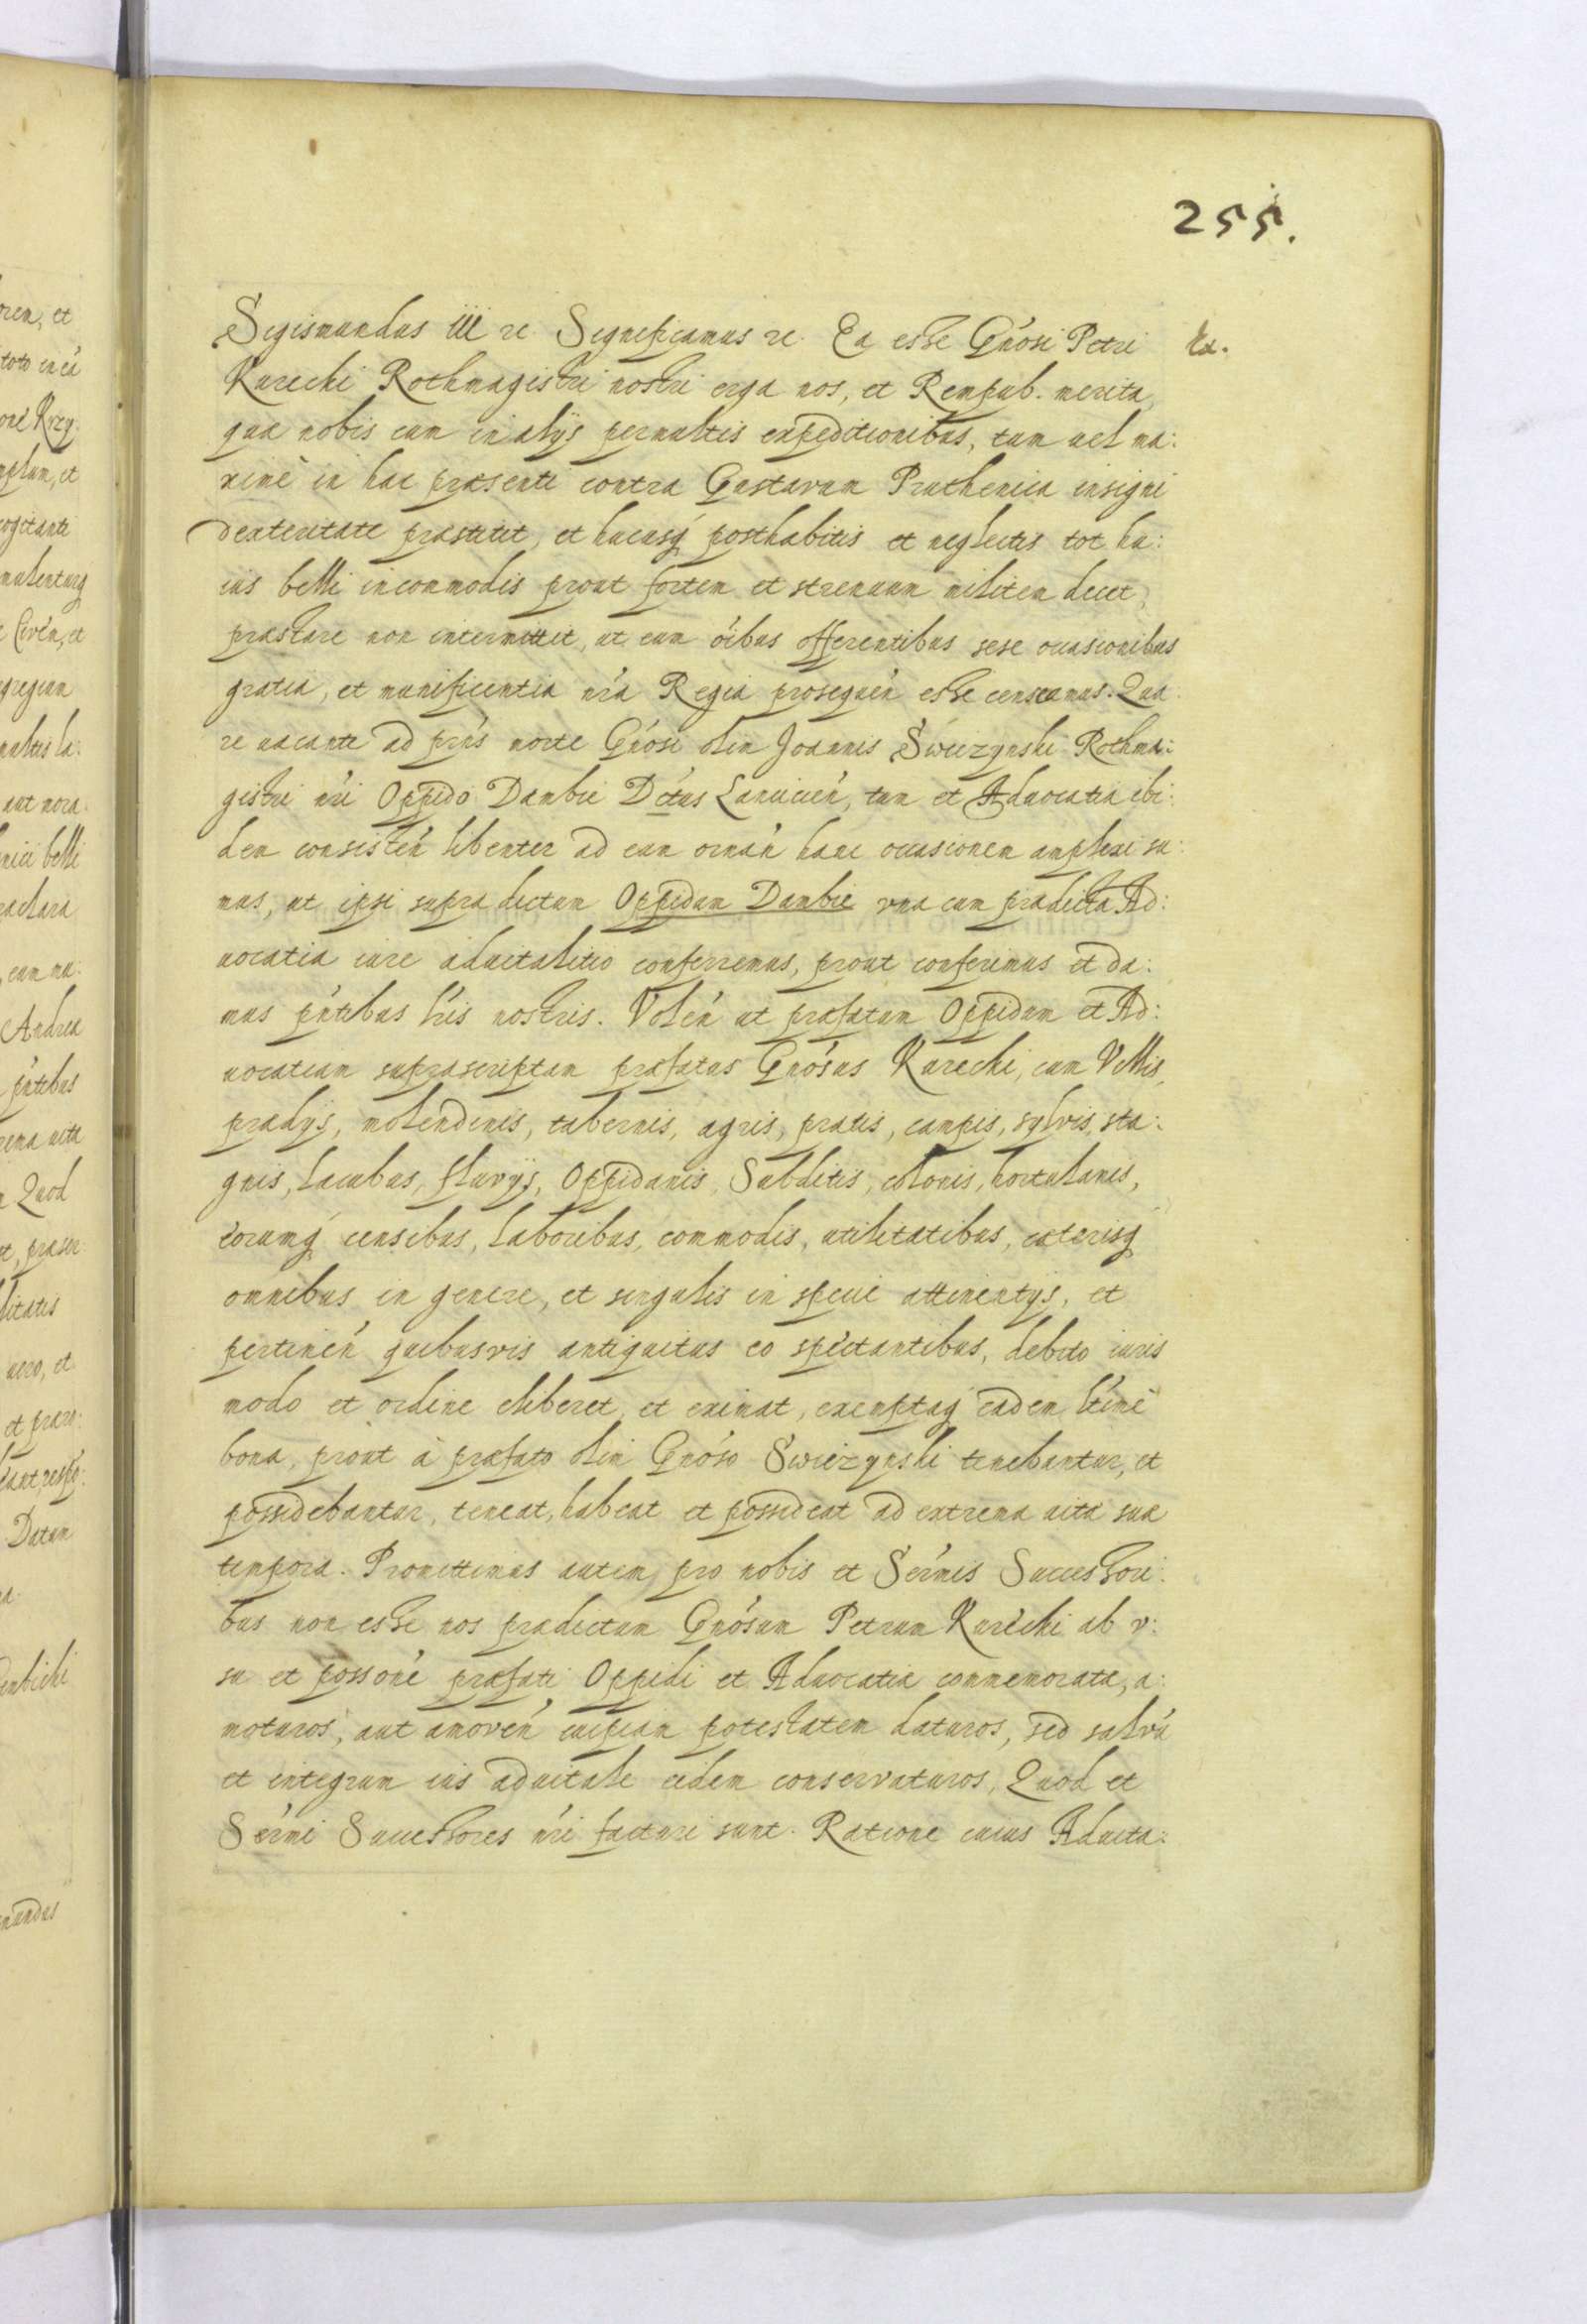 255.
Sigismundus III rc. Significamus rc. Ea esse Gnósi Petri
Ex.
Kurecki Rothmagistri nostri erga nos, et Rempub. merita,
quæ nobis cum in alijs permultis expeditionibus, tum uel ma:
ximè in hac præsenti contra Gustavum Pruthenica insigni
dexteritate præstitit, et hucusq́ posthabitis et neglectis tot hu:
ius belli incommodis prout fortem et strenuum militem decet,
præstare non intermittit, ut eum óibus offerentibus sese occasionibus
gratia, et munificentia nrá Regia prosequeń esse censeamus. Qua:
re uacante ad prńs morte Gnósi olim Joannis Swiezynski Rothma:
gistri nrí Oppido Dambie Dctús Lanicień, tum et Aduocatia ibi:
dem consisteń libenter ad eum ornań hanc occasionem amplexi su:
mus, ut ipsi supra dictum Oppidum Dambie vna cum prædicta Ad:
uocatia iure aduitalitio conferremus, prout conferimus et da:
mus pńtibus lrís nostris. Voleń ut præfatum Oppidum et Ad:
uocatiam suprascriptam præfatus Gnósus Kurecki, cum Villis,
prædijs, molendinis, tabernis, agris, pratis, campis, sylvis, sta:
gnis, lacubus, fluvijs, Oppidanis, Subditis, colonis, hortulanis,
eorumq́ censibus, laboribus, commodis, utilitatibus, cæterisq́
omnibus in genere, et singulis in specie attinentijs, et
pertineń quibusvis antiquitus eo spectantibus, debito iuris
modo et ordine eliberet, et eximat, exemptaq́ eadem ltímè
bona, prout à præfato olim Gnóso Swiezynski tenebantur, et
possidebantur, teneat, habeat et possideat ad extrema uitæ suæ
tempora. Promittimus autem pro nobis et Sermís Successori:
bus non esse nos prædictum Gnósum Petrum Kurecki ab v:
su et possoné præfati Oppidi et Aduocatiæ commemoratæ, a:
moturos, aut amoveń cuipiam potestatem daturos, sed salvú
et integrum ius aduitale eidem conservaturos, Quod et
Sermí Successores nrí facturi sunt. Ratione cuius Aduita: